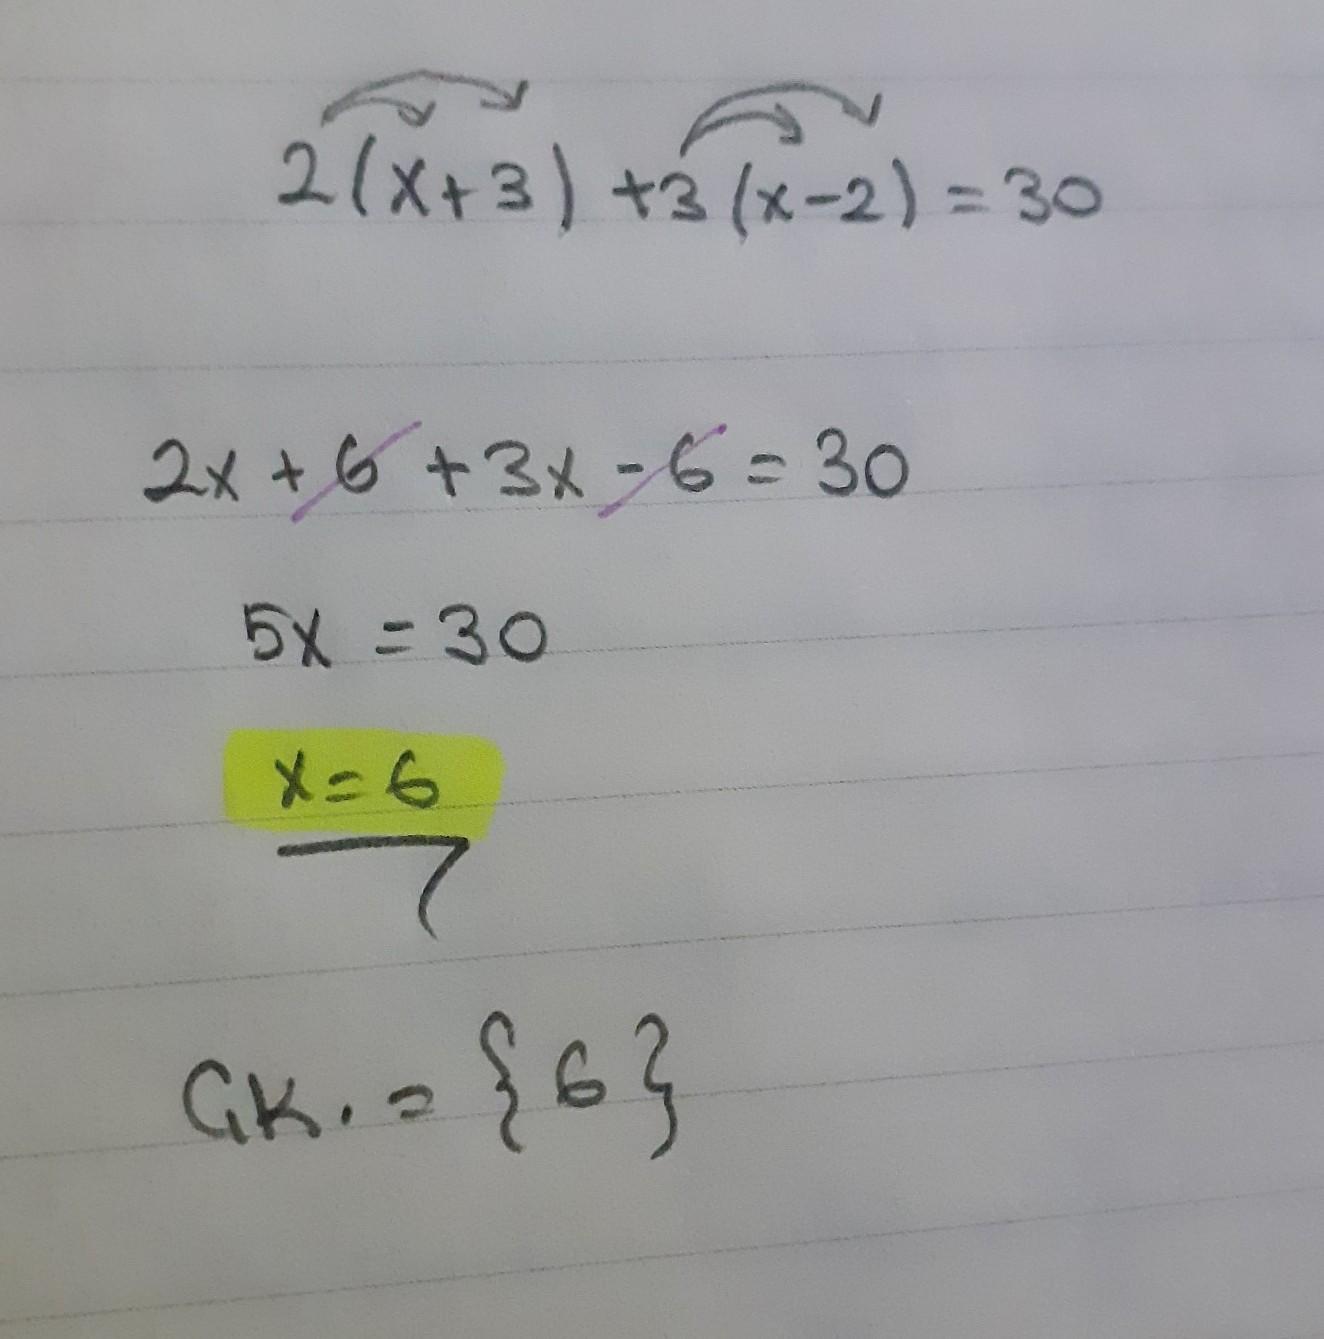 2(x+3) +3(x-2) = 30
2x + 6 + 3x - 6 = 30
5x = 30
x = 6
ÇK. = {6}